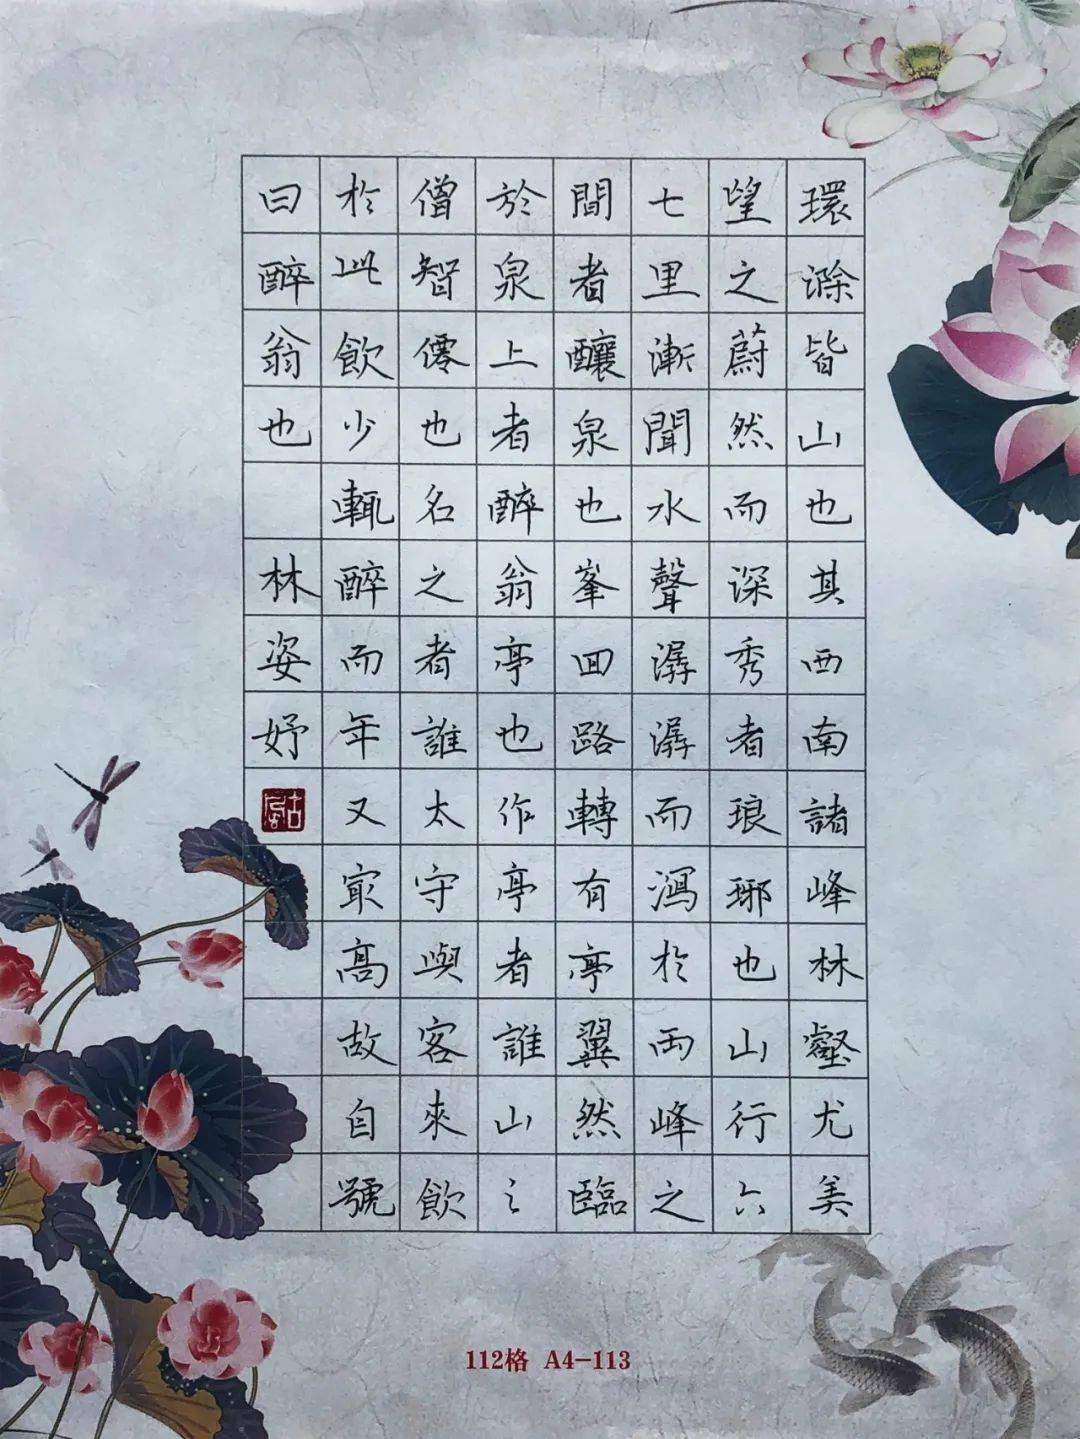 環滁皆山也其西南諸峰林壑尤美
望之蔚然而深秀者琅琊也山行六
七里漸聞水聲潺潺而瀉於兩峰之
間者釀泉也峯回路轉有亭翼然臨
於泉上者醉翁亭也作亭者誰山之
僧智僊也名之者誰太守與客來飲
於此飲少輒醉而年又最高故自號
曰醉翁也 林姿妤
古風
112格 A4-113